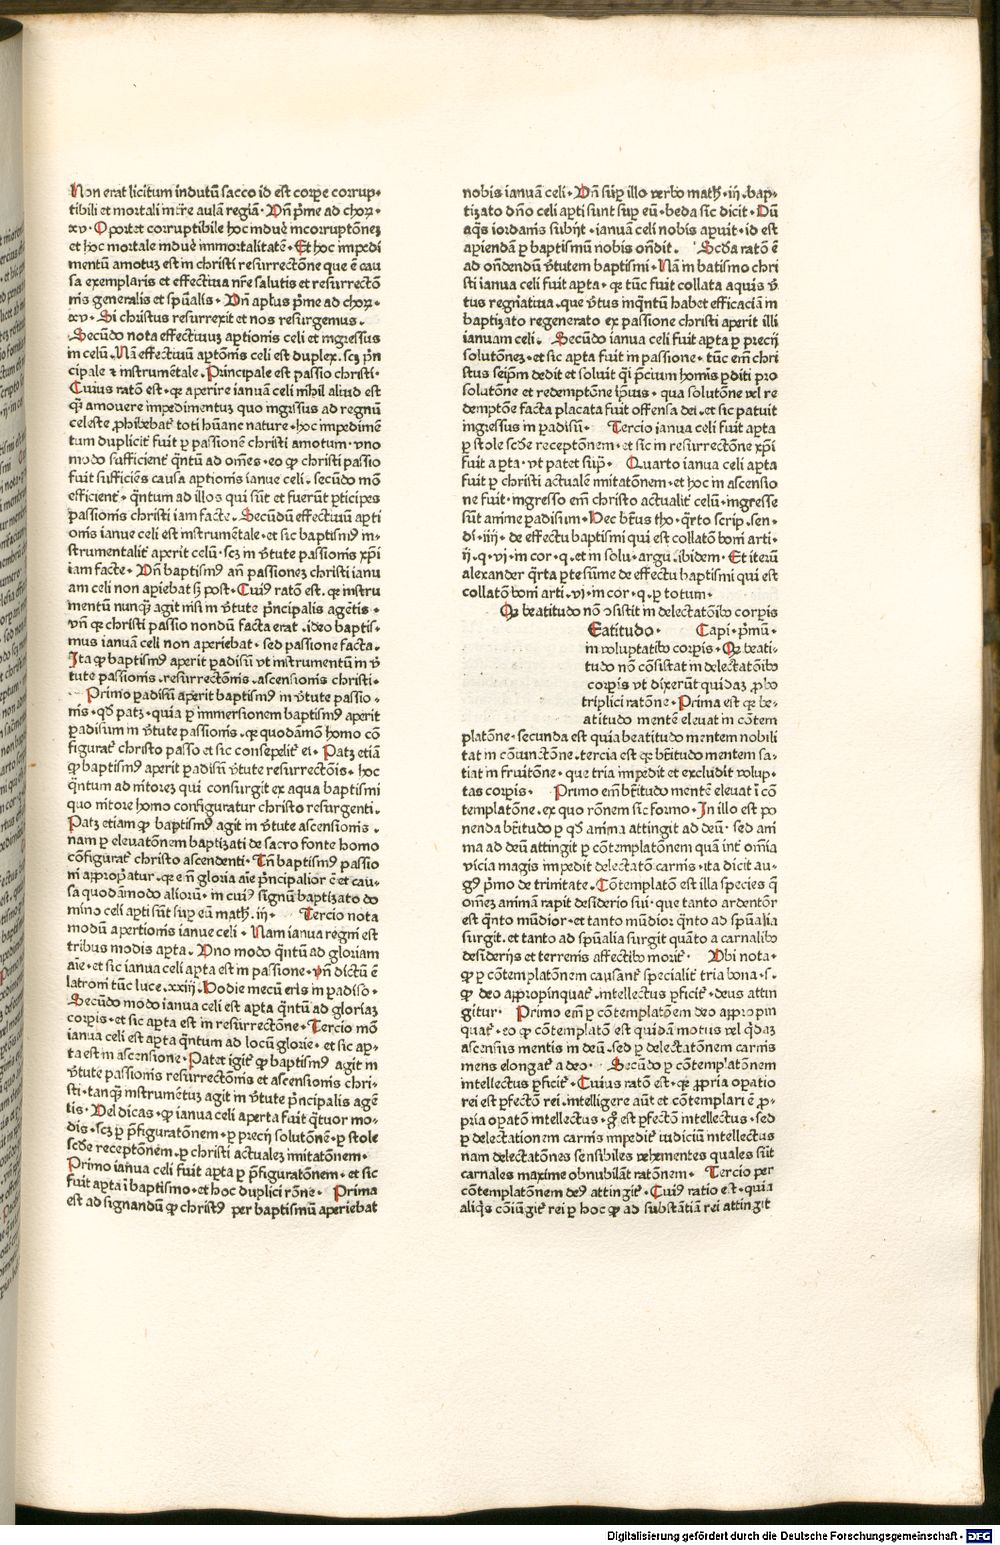 Non erat licitum indutū sacco id est corpe corrup⸗
tibili et mortali intrͤe aulā regiā. Vn̄ pͥme ad choꝝ.
xv. Oportet corruptibile hoc induē incorruptōnez
et hoc mortale induē immortalitatē. Et hoc impedi
mentū amotuz est in christi resurrectōne que ē cau
sa exemplaris et effectiua nr̄e salutis et resurrectō
nis generalis et spūalis. Vn̄ aplūs pͥme ad choꝝ.
xv. Si christus resurrexit et nos resurgemus.
Secūdo nota effectiuuz aptionis celi et ingressus
in celū. Nā effectiuū aptōnis celi est duplex. scꝫ pͥn
cipale ⁊ instrumētale. Principale est passio christi.
Cuius ratō est. qꝛ aperire ianuā celi nihil aliud est
qͣꝫ amouere impedimentuz quo ingressus ad regnū
celeste ꝓhibebat᷑ toti hūane nature. hoc impedimē
tum duplicit᷑ fuit ꝑ passionē christi amotum. vno
modo sufficient᷑ qͣntū ad om̄es. eo ꝙ christi passio
fuit sufficiēs causa aptionis ianue celi. secūdo mō
efficient᷑. qͣntum ad illos qui sūt et fuerūt ꝑticipes
passionis christi iam facte. Secūdū effectiuū apti
onis ianue celi est instrumētale. et sic baptismꝰ in⸗
strumentalit᷑ aperit celū. scꝫ in v̄tute passionis xp̄i
iam facte. Vn̄ baptismꝰ an̄ passionez christi ianu
am celi non apiebat sꝫ post. Cuiꝰ ratō est. qꝛ instru
mentū nunqͣꝫ agit nisi in v̄tute pͥncipalis agētis.
vn̄ qꝛ christi passio nondū facta erat. ideo baptis⸗
mus ianuā celi non aperiebat. sed passione facta.
Ita ꝙ baptismꝰ aperit ꝑadisū vt instrumentū in v̄
tute passionis. resurrectōnis. ascensionis christi.
Primo ꝑadisū aperit baptismꝰ in v̄tute passio⸗
nis. qd̓ patꝫ. quia ꝑ immersionem baptismꝰ aperit
ꝑadisum in v̄tute passionis. qꝛ quodāmō homo cō
figurat᷑ christo passo et sic consepelit᷑ ei. Patꝫ etiā
ꝙ baptismꝰ aperit ꝑadisū v̄tute resurrectōis. hoc
qͣntum ad nitorez qui consurgit ex aqua baptismi
quo nitore homo configuratur christo resurgenti.
Patꝫ etiam ꝙ baptismꝰ agit in v̄tute ascensionis.
nam ꝑ eleuatōnem baptizati de sacro fonte homo
cōfigurat᷑ christo ascendenti. Tn̄ baptismꝰ passio
ni appropͥatur. qꝛ e n̄ gloria aīe pͥncipalior ē et cau⸗
sa quodāmodo aliorū. in cuiꝰ signū baptizato do
mino celi apti sūt suꝑ eū math. iij. Tercio nota
modū apertionis ianue celi. Nam ianua regni est
tribus modis apta. Vno modo qͣntū ad gloriam
aīe. et sic ianua celi apta est in passione. vn̄ dictū ē
latroni tūc luce. xxiij. Hodie mecū eris in ꝑadiso.
Secūdo modo ianua celi est apta qͣntū ad gloriaz
corpis. et sic apta est in resurrectōne. Tercio mō
ianua celi est apta qͣntum ad locū glorie. et sic ap⸗
ta est in ascensione. Patet igit᷑ ꝙ baptismꝰ agit in
v̄tute passionis resurrectōnis et ascensionis chri⸗
sti. tanqͣꝫ instrumētuz agit in v̄tute pͥncipalis agē
tis. Vel dicas. ꝙ ianua celi aperta fuit qͣtuor mo⸗
dis. scꝫ ꝑ pͥfiguratōnem. ꝑ precij solutōnē. ꝑ stole
scd̓e receptōnem. ꝑ christi actualez imitatōnem.
Primo ianua celi fuit apta ꝑ pͥfiguratōnem. et sic
fuit apta ī baptismo. et hoc duplici rōne. Prima
est ad signandū ꝙ christꝰ per baptismū aperiebat
nobis ianuā celi. Vn̄ suꝑ illo verbo math̓. iij. bap⸗
tizato dn̄o celi apti sunt suꝑ eū. beda sic dicit. Dū
aqͣs iordanis subijt. ianuā celi nobis apuit. id est
apiendā ꝑ baptismū nobis on̄dit. Scd̓a ratō ē
ad on̄dendū v̄tutem baptismi. Nā in batismo chri
sti ianua celi fuit apta. qꝛ tūc fuit collata aquis v̄
tus regn̄atiua. que v̄tus inqͣntū habet efficaciā in
baptizato regenerato ex passione christi aperit illi
ianuam celi. Secūdo ianua celi fuit apta ꝑ precij
solutōnez. et sic apta fuit in passione. tūc em̄ chri
stus seip̄m dedit et soluit qͥ pͥcium homis ꝑditi pro
solutōne et redemptōne ip̄ius. qua solutōne vel re
demptōne facta placata fuit offensa dei. et sic patuit
ingressus in ꝑadisū. Tercio ianua celi fuit apta
ꝑ stole scd̓e receptōnem. et sic in resurrectōne xp̄i
fuit apta. vt patet supͣ. Quarto ianua celi apta
fuit ꝑ christi actualē imitatōnem. et hoc in ascensio
ne fuit. ingresso em̄ christo actualit᷑ celū. ingresse
sūt anime ꝑadisum. Hec bt̄us tho. qͣrto scrip. sen.
di. iiij. de effectu baptismi qui est collatō boni arti.
ij. q. vj. in cor. q. et in solu. argu. ibidem. Et iterū
alexander qͣrta ꝑte sūme de effectu baptismi qui est
collatō boni arti. vj. in cor. q. ꝑ totum.
Qꝫ beatitudo nō ↄsistit in delectatōibꝰ corpis
Eatitudo. Capi. pͥmū.
in voluptatibꝰ corpis. Qꝫ beati⸗
tudo nō cōsistat in delectatōibꝰ
corpis vt dixerūt quidaz ꝓbo
triplici ratōne. Prima est qꝛ be⸗
atitudo mentē eleuat in cōtem
platōne. secunda est quia beatitudo mentem nobili
tat in cōiunctōne. tercia est qꝛ bt̄itudo mentem sa⸗
tiat in fruitōne. que tria impedit et excludit volup⸗
tas corpis. Primo em̄ bt̄itudo mentē eleuat ī cō
templatōne. ex quo rōnem sic formo. In illo est po
nenda bt̄itudo ꝑ qd̓ anima attingit ad deū. sed ani
ma ad deū attingit ꝑ cōtemplatōnem quā int᷑ om̄ia
vicia magis impedit delectatō carnis. ita dicit au⸗
gꝰ pͥmo de trinitate. Cōtemplatō est illa species q̄
om̄ez animā rapit desiderio sui. que tanto ardentōr
est qͣnto mūdior. et tanto mūdior qͣnto ad spūalia
surgit. et tanto ad spūalia surgit quāto a carnalibꝰ
desiderijs et terrenis affectibꝰ morit᷑. Vbi nota.
ꝙ ꝑ cōtemplatōnem causant᷑ specialit᷑ tria bona. s.
ꝙ deo appropinquat᷑. intellectus ꝑficit᷑. deus attin
gitur. Primo em̄ ꝑ cōtemplatōem deo appropin
quat᷑. eo ꝙ cōtemplatō est quidā motus vel qͥdaz
ascensus mentis in deū. sed ꝑ delectatōnem carnis
mens elongat᷑ a deo. Secūdo ꝑ cōtemplatōnem
intellectus ꝑficit᷑. Cuius ratō est. qꝛ ꝓpria opatio
rei est ꝑfectō rei. intelligere aūt et cōtemplari ē ꝓ⸗
pria opatō intellectus. gͦ est ꝑfectō intellectus. sed
ꝑ delectationem carnis impedit᷑ iudiciū intellectus
nam delectatōnes sensibiles vehementes quales sūt
carnales maxime obnubilāt ratōnem. Tercio per
cōtemplatōnem deꝰ attingit᷑. Cuiꝰ ratio est. quia
aliqͥs cōiūgit᷑ rei ꝑ hoc ꝙ ad substātiā rei attingit
Digitalisierung gefördert durch die Deutsche Forschungsgemeinschaft - DFG